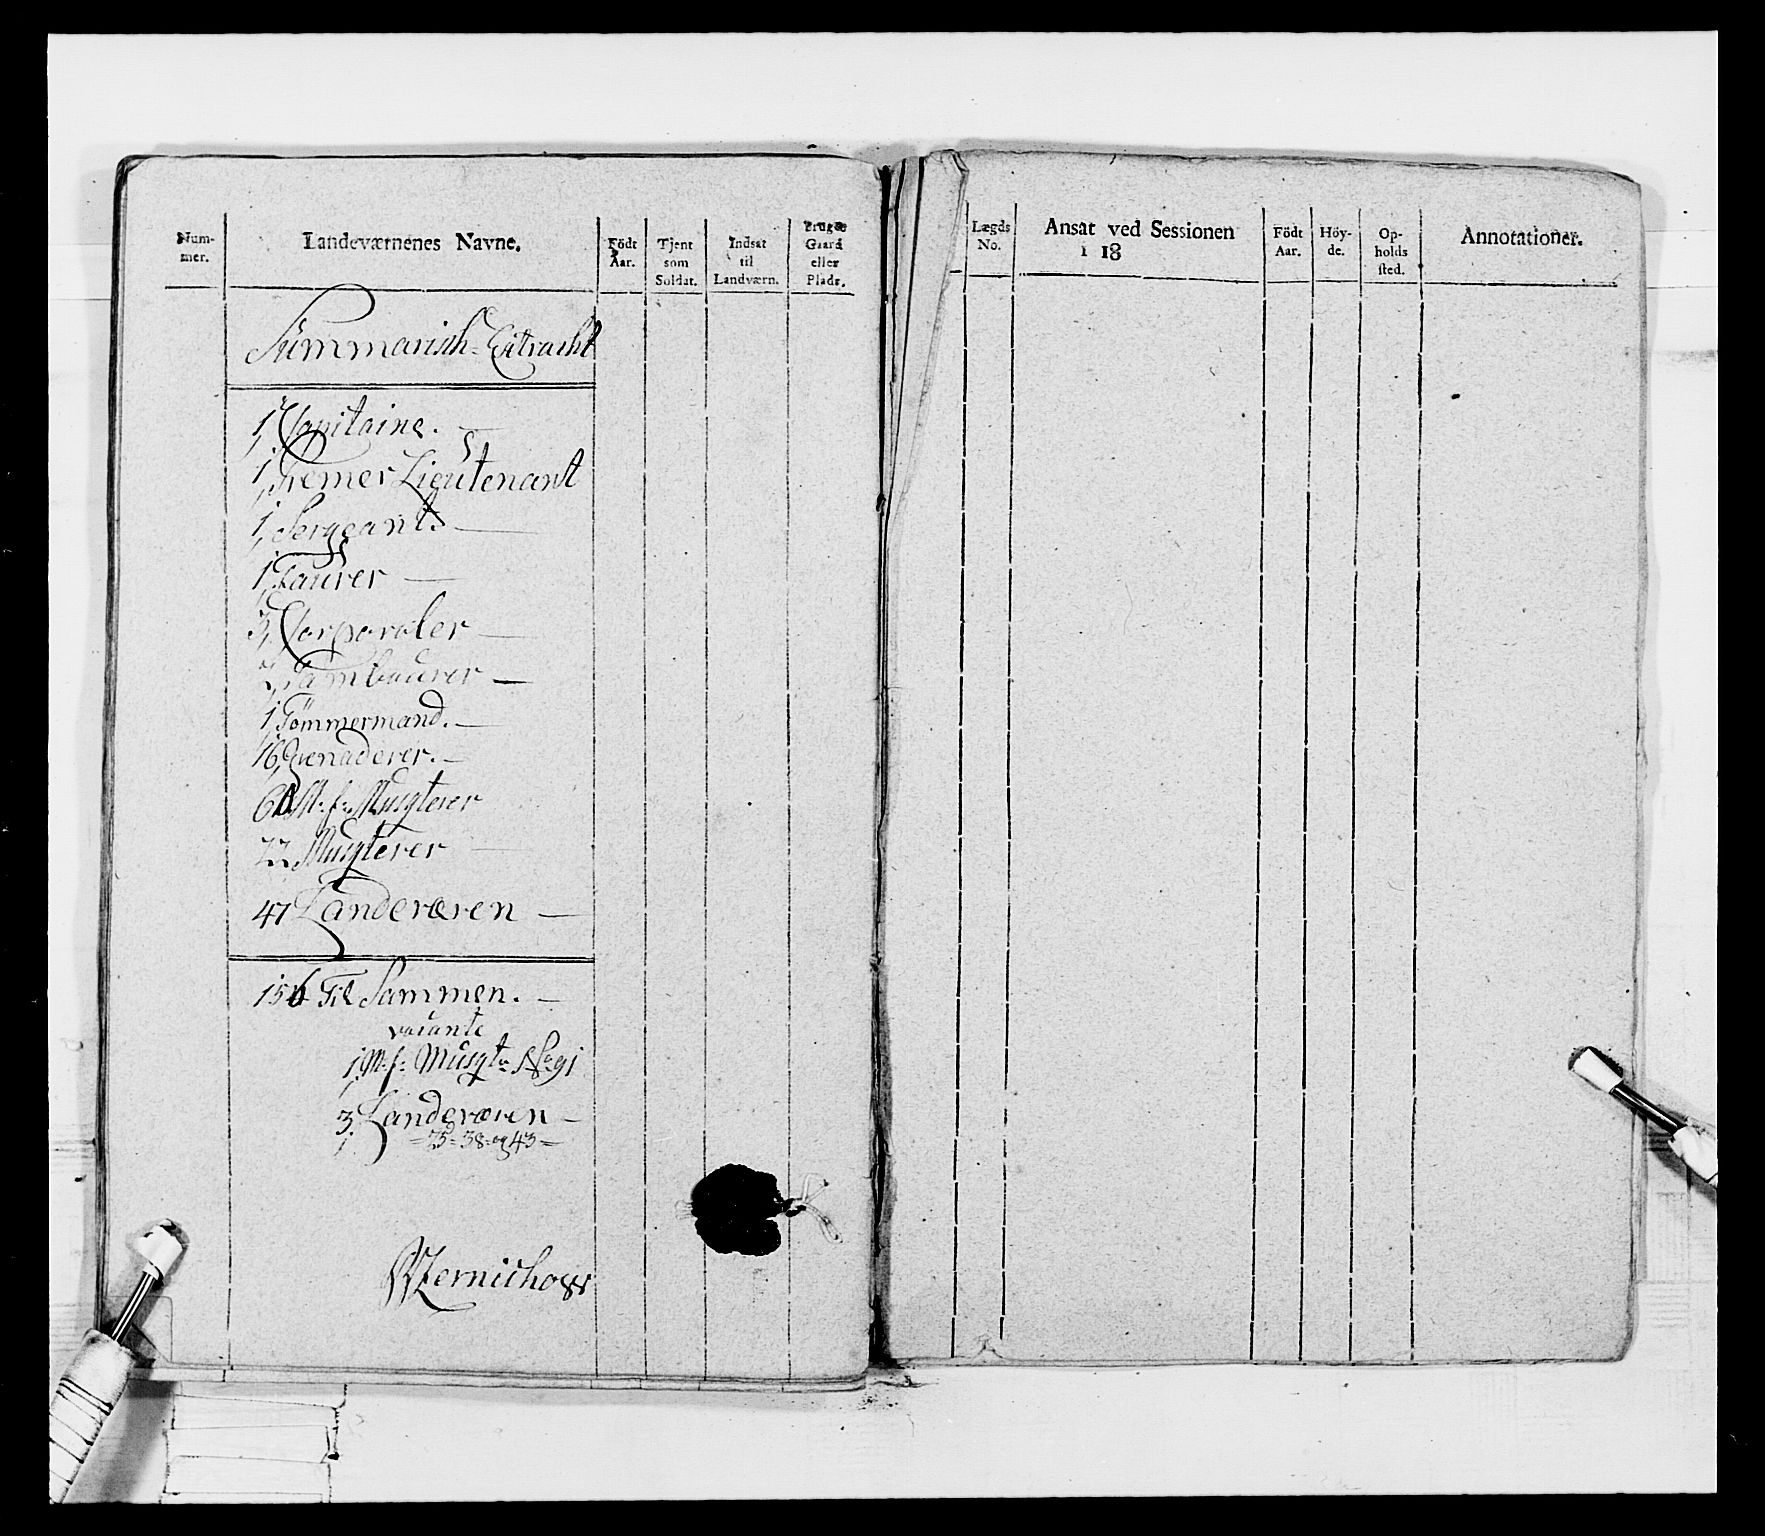 Num-
mer.
Landeværnenes Navne.
Födt
Aar.
Tjent
som
Soldat.
Indsat
til
Landværn.
Brugde
Gaard
eller
Plads.
Summarisk Extracht
1, Capitaine.
1, Premer Lieutenant
1, Sergeant
1, Faurer
3, Corporaler
2, Tambourer
1, Tömmermand.
16, Grenaderer.
60 M: f: Musqterer
22 Musqterer
47 Landeværen
156 Til Sammen.
vacante
1, M: f: Musqt: No 91
3, Landeværen
25 = 38 = og 43
Wernichow
Lægds
No.
Ansat ved Sessionen
i 18
Födt
Aar.
Höy-
de.
Op-
holds
sted.
Annotationer.